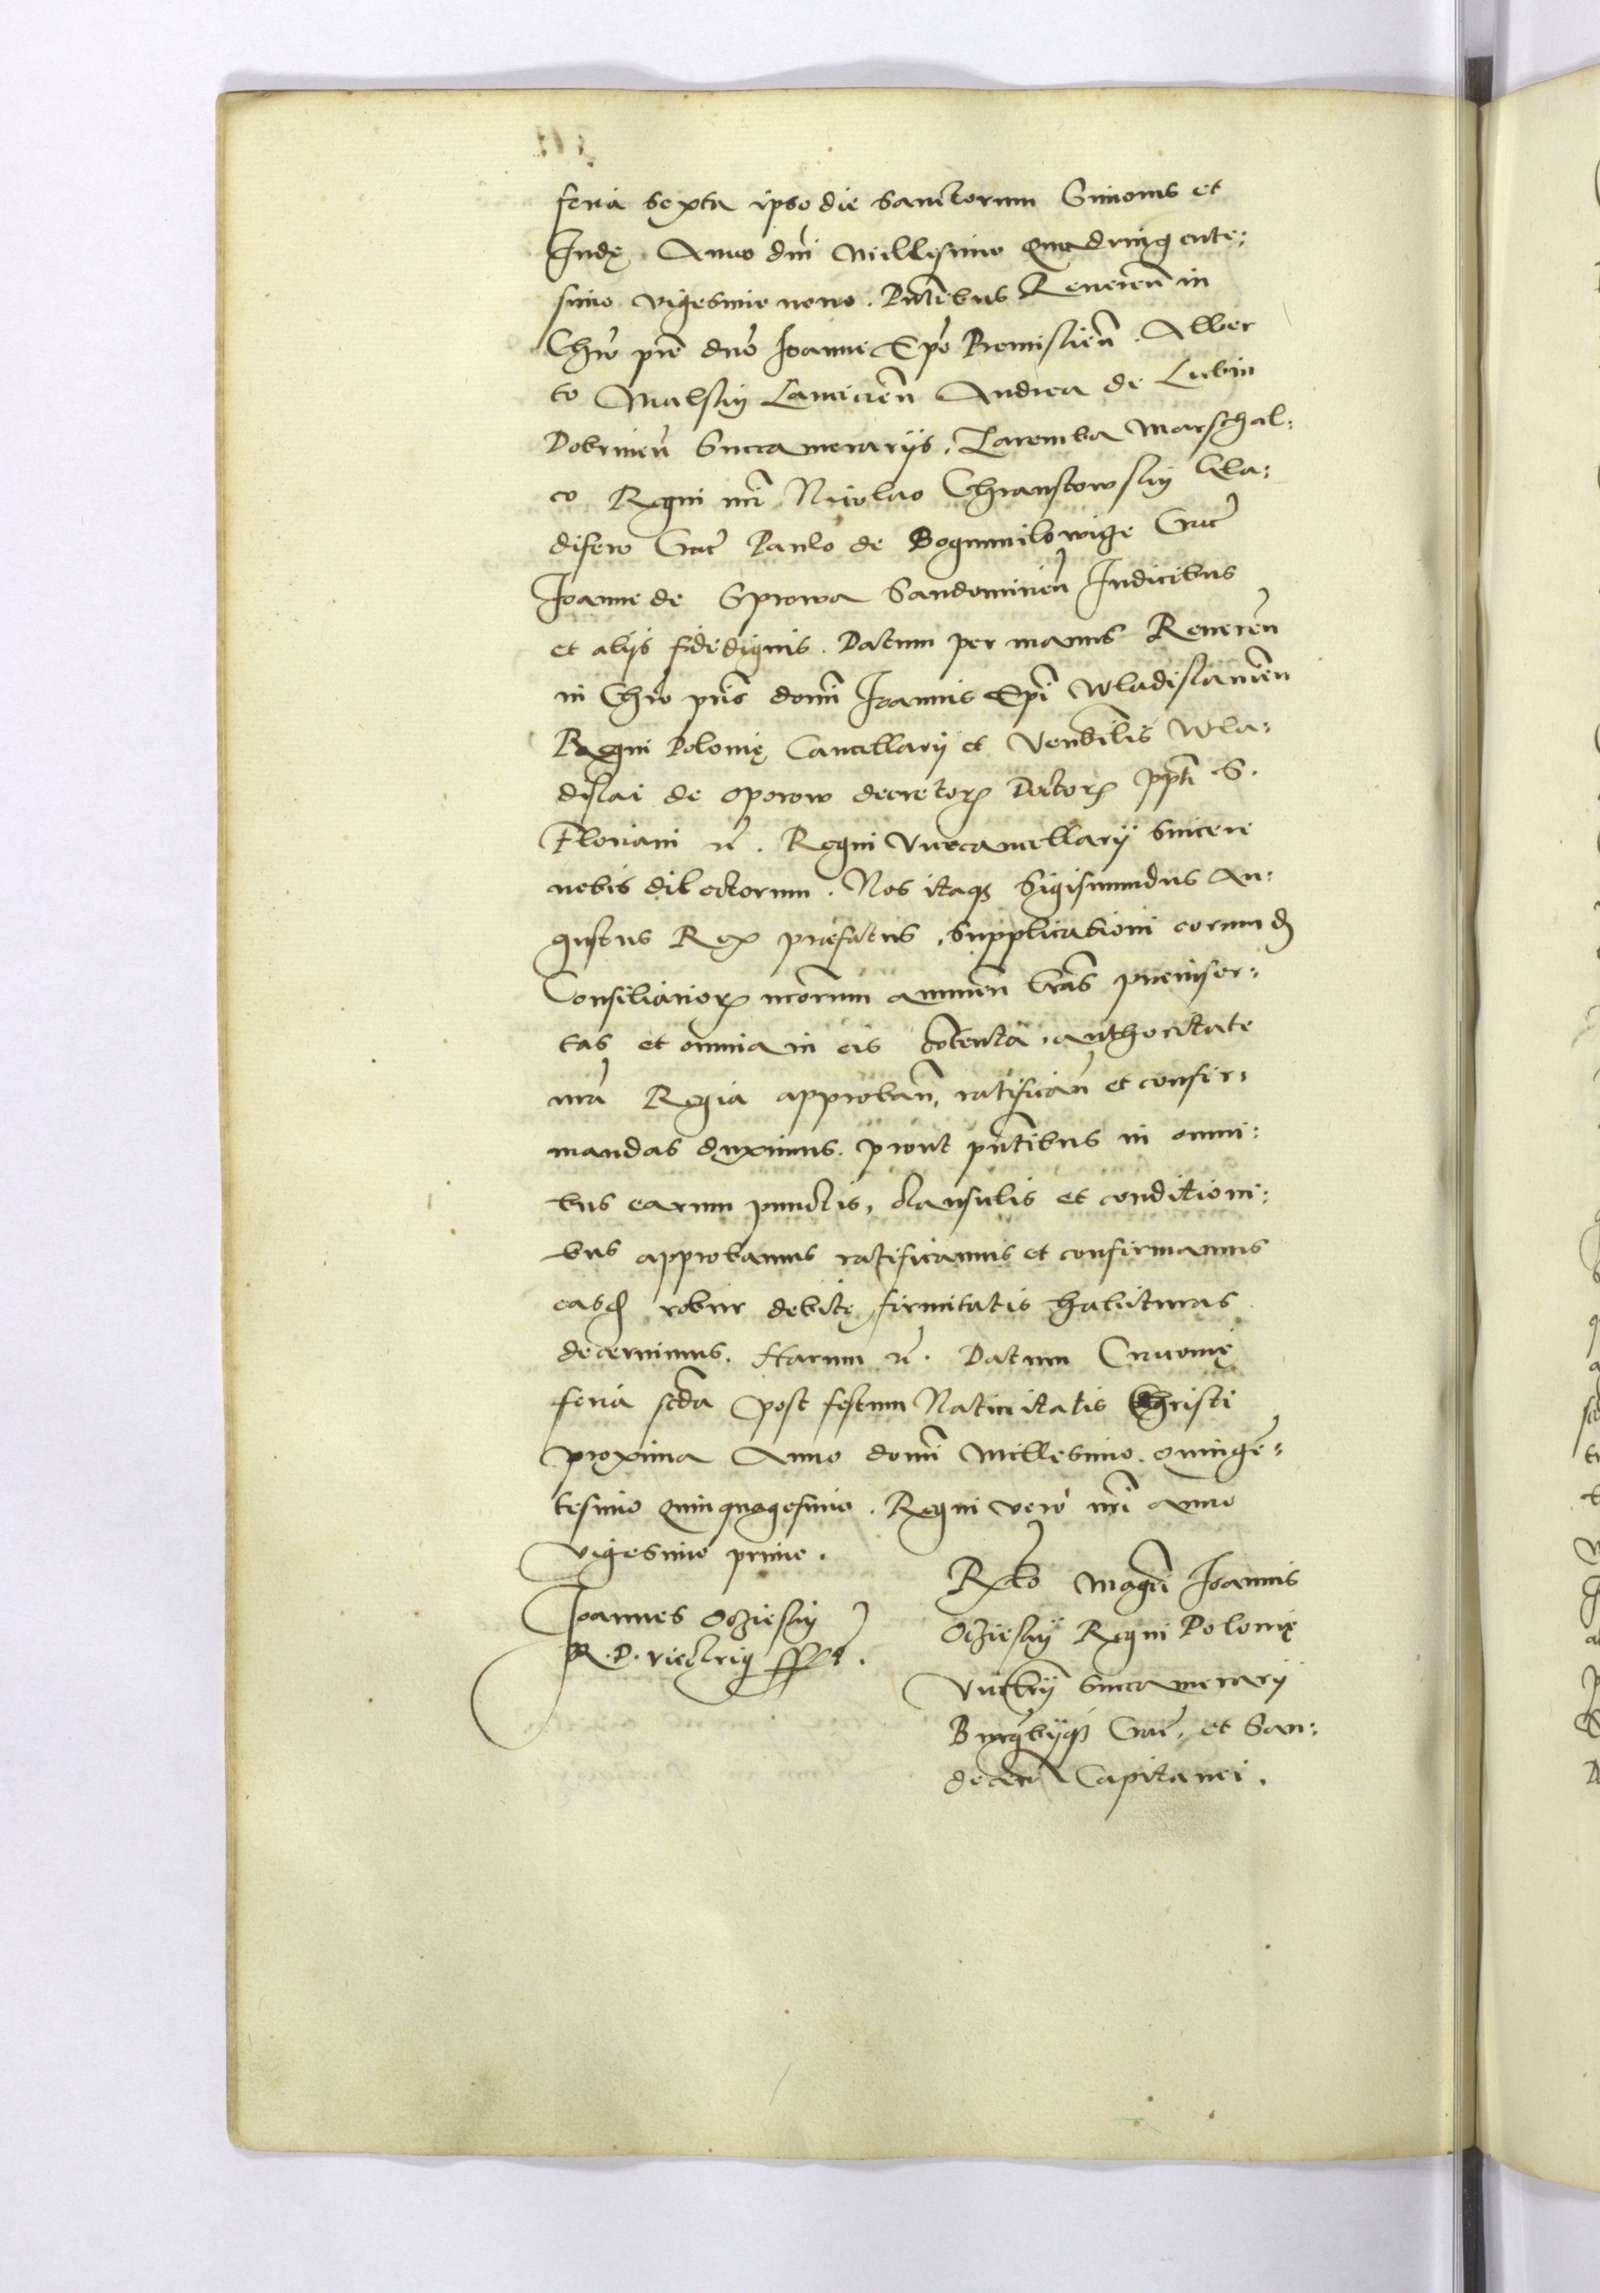 feria sexta ipso die Sanctorum Simonis et
Judę Anno dni Millesimo Quadringente:
simo vigesimo nono. Pntibus Reveren in
Chro pre dno Joanne Epo Premislien. Alber
to Malsky Lancicien Andrea de Lubin
Dobrinen Succamerarijs, Zaremba Marschal:
co Regni nri Nicolao Chranstowsky Gla:
disero Crac Paulo de Bogumilowige Crac
Joanne de Sprowa Sandomirien Judicibus
et alijs fidedignis. Datum per manus Reveren
in Chro pris domi Joannis Epi Wladislavien
Regni Polonię Cancellarij et Venbilis Wla:
dislai de Oporow decretor Doctor ppti S.
Floriani rc. Regni Vicecancellarij sincere
nobis dilectorum. Nos itaq Sigismundus Au:
gustus Rex praefatus, supplicationi eorumd
Consiliarior nrorum annuen lras preinser:
tas et omnia in eis cotenta, authoritate
nra Regia approban, ratifican et confir:
mandas duximus. prout pntibus in omni:
bus earum punctis, clausulis et conditioni:
bus approbamus ratificamus et confirmamus
easd robur debitę firmitatis habituras
decernimus. Harum rc. Datum Cracovię
feria scda post festum Nativitatis Christi
proxima Anno domi Millesimo. Quinge:
tesimo Quinquagesimo. Regni vero nri anno
vigesimo primo.
Joannes Ocziesky
R. P. Vicecrig sst.
Rlto Magci Joannis
Ocziesky Regni Polonię
Vicecrij Succamerarij
Burgbijq Crac, et San:
decen Capitanei.